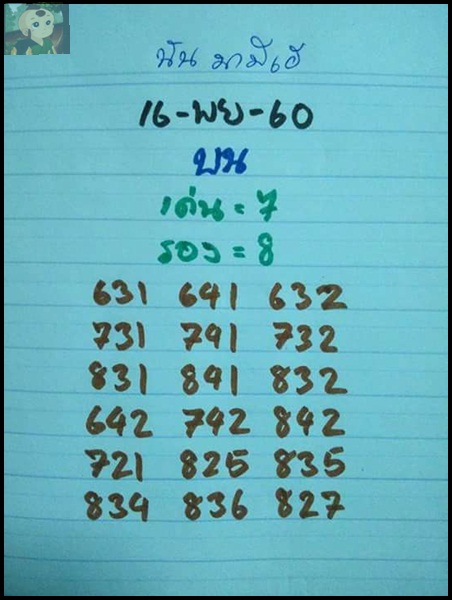 นัน มามีเฮ
16-พย-60
บน
เด่น = 7
รอง = 8
631 641 632
731 741 732
831 841 832
642 742 842
721 825 835
834 836 827